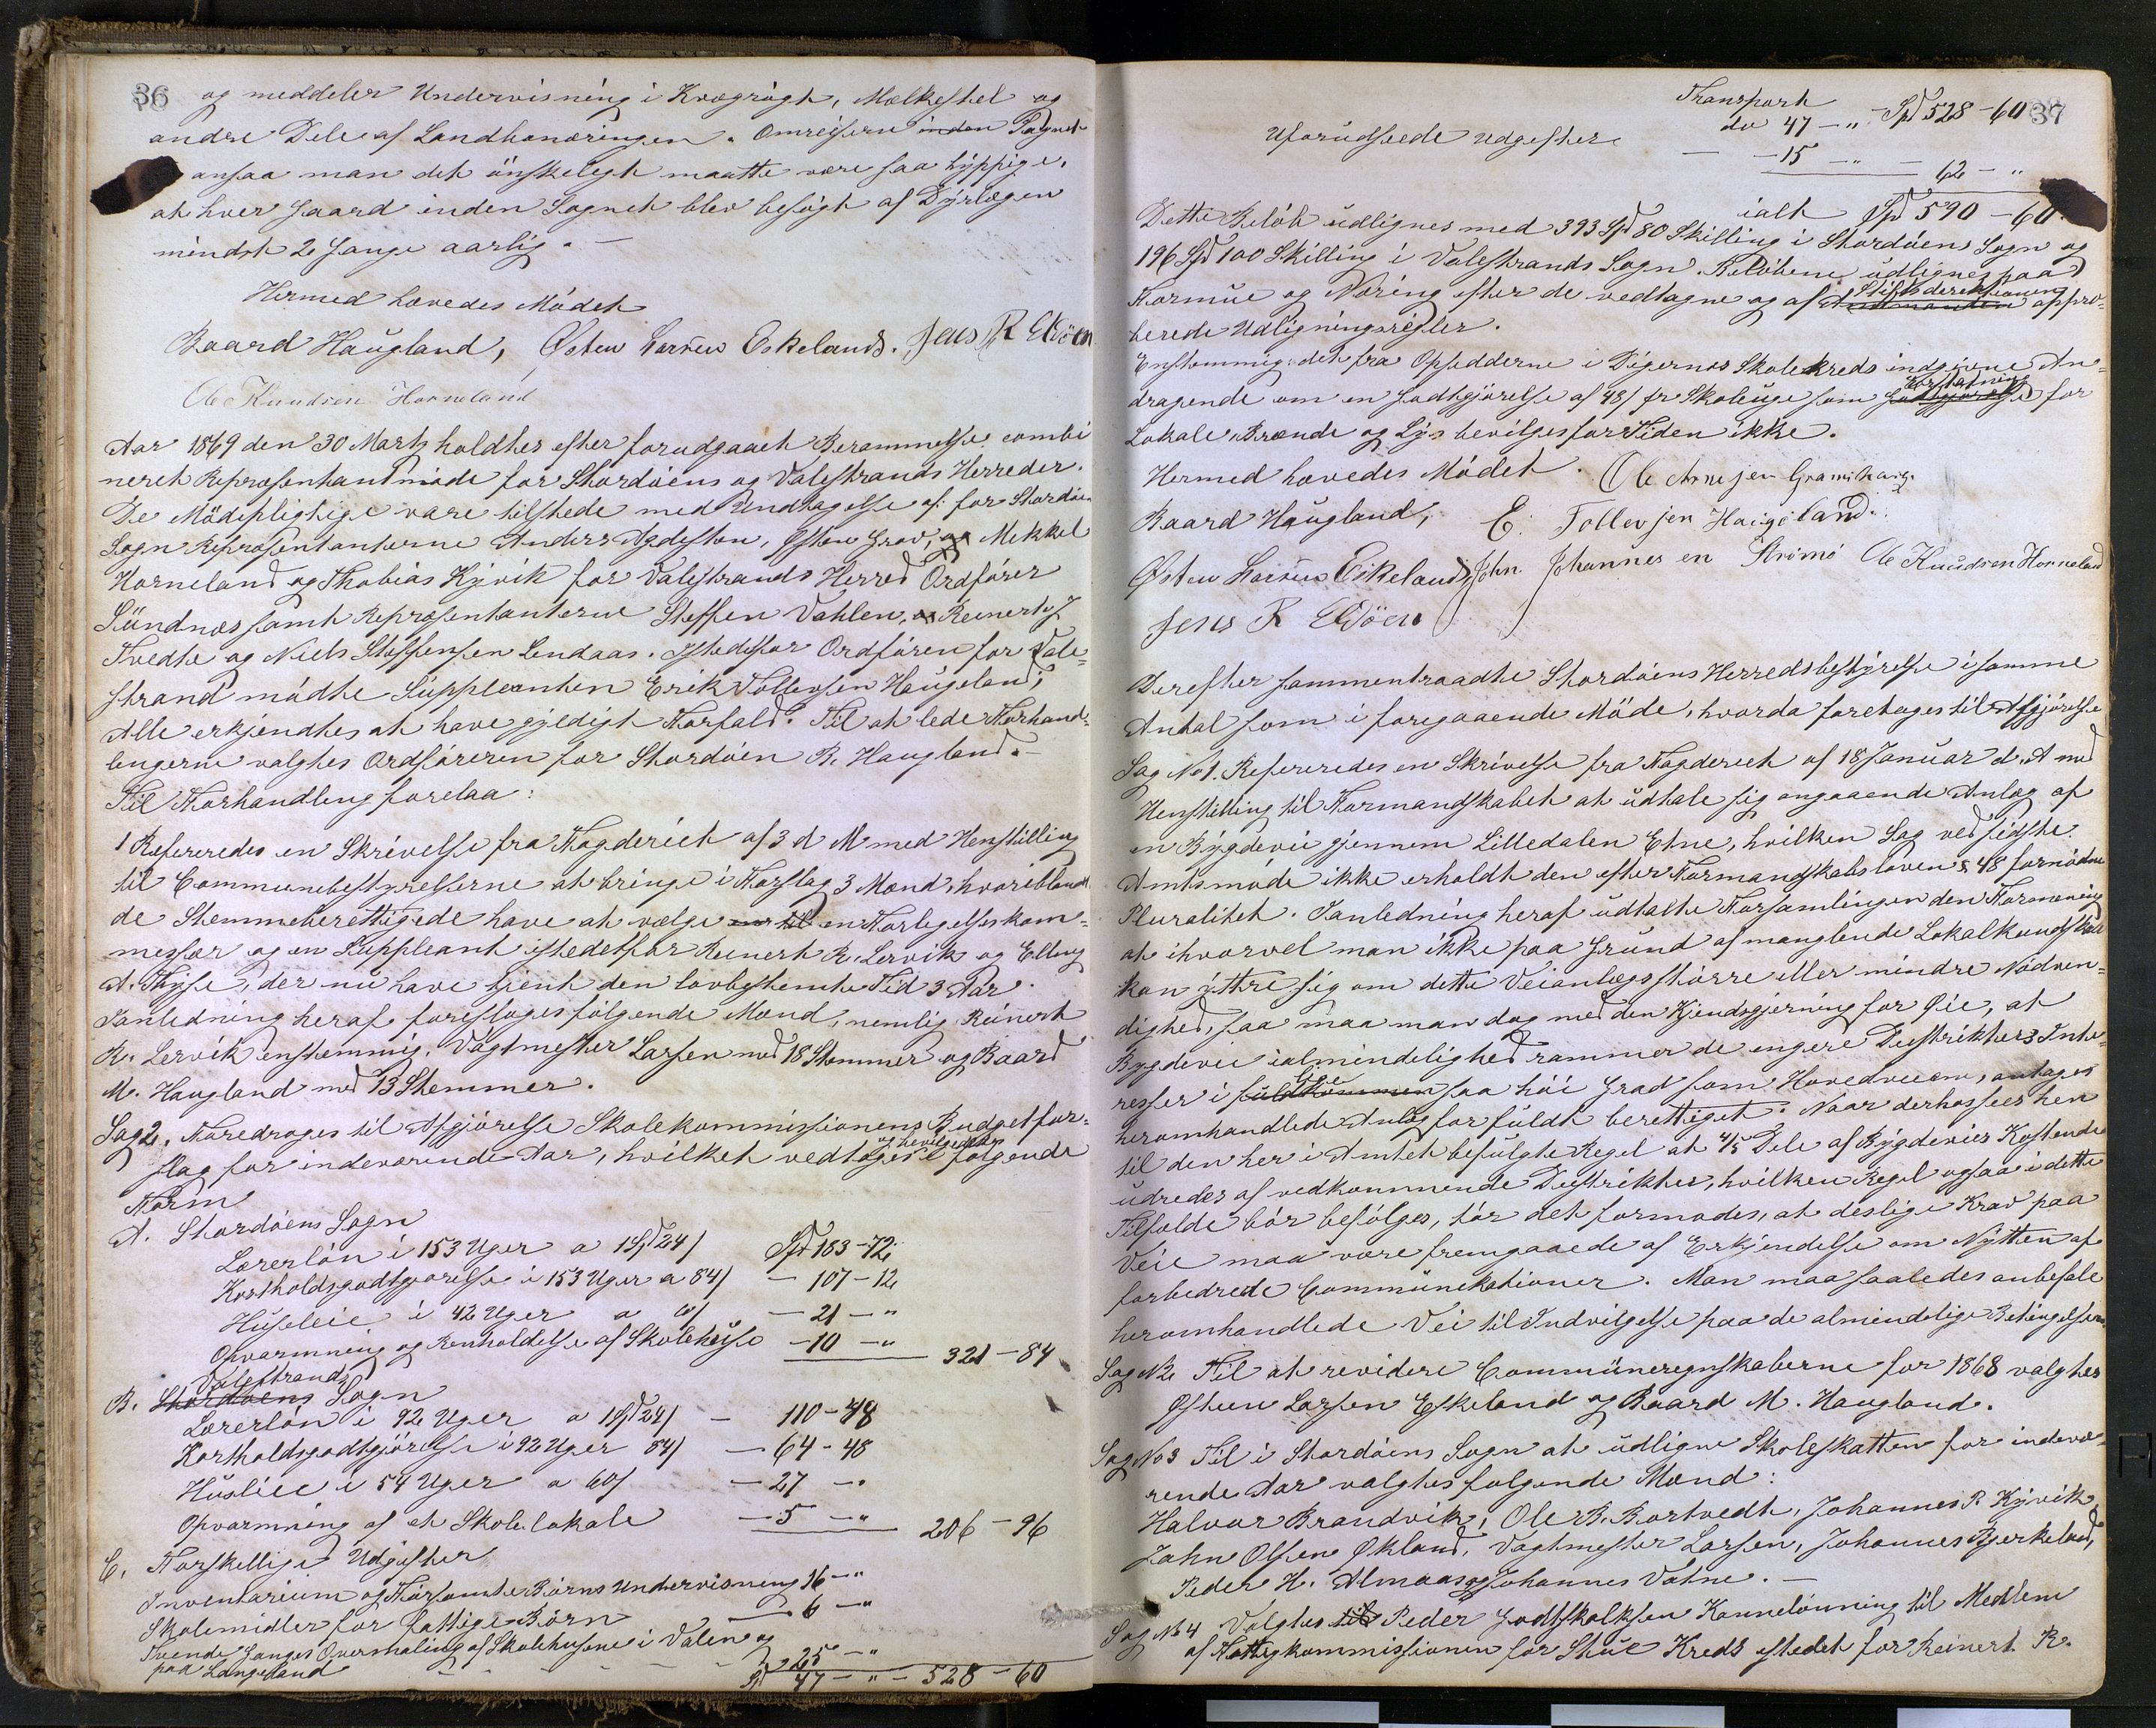 36
og meddeler Undervisning i Kvægrögt, Mælkestel og
andre Dele af Landbonæringen. Omreiserne inden Sognet
ansaa man det önskeligt maatte være saa hyppige,
at hver Gaard inden Sognet blev besögt af Dyrlægen
mindst 2 Gange aarlig. —
Hermed hævedes Mödet
Baard Haugland, Østen Larsen Eskeland. Jens R Eldöen
Ole Knudsen Horneland
Aar 1869 den 30 Marts holdtes efter forudgaaet Berammelse combi
neret Repræsentantmöde for Stordöens og Valestrands Herreder.
De Mödepligtige vare tilstede med Undtagelse af: for Stordöen
Sogn Repræsentanterne Anders Agdesten, Østen Grov, og Mekkel
Horneland og Thobias Kyvik for Valestrands Herred Ordförer
Sündnæs samt Repræsentanterne Steffen Vahlen, og Reinert J
Tvedte og Niels Steffensen Lendaas. Istedetfor Ordfören for Vale=
strand mödte Süppleanten Erik Tollevsen Haügeland;
Alle erkjendtes at have gyldigt Forfald. Til at lede Forhand=
lingerne valgtes Ordföreren for Stordöen B. Haugland. —
Til Forhandling forelaa:
1 Refereredes en Skrivelse fra Fogderiet af 3 d M med Henstilling
til Communebestyrelserne at bringe i Forslag 3 Mænd, hvoriblandt
de Stemmeberettigede have at vælge en til en Forligelseskom=
missær og en Suppleant istedetfor Reinert R. Lervik og Elling
A. Tyse, der nu have tjent den lovbestemte Tid 3 Aar.
I anledning heraf foresloges fölgende Mænd, nemlig Reinert
R. Lervik enstemmig. Vagtmester Larsen med 18 Stemmer og Baard
M. Haugland med 13 Stemmer.
Sag 2. Foredroges til Afgjörelse Skolekommissionens Budgetfor=
slag for indeværende Aar, hvilket vedtoges og bevilgedes i fölgende
Form
A. Stordöens Sogn
Lærerlön i 153 Uger a 1 Spd 24 / Spd 183-72
Kostholdsgodtgjörelse i 153 Uger a 84 / — 107-12
Huseleie i 42 Uger a 60 / — 21 — "
Opvarmning og Renholdelse af Skolehuse — 10 — " 321-84
B. Stordöens Valestrands Sogn
Lærerlön i 92 Uger a 1 Spd 24 / — 110-48
Kostholdsgodtgjörelse i 92 Uger 84 / — 64-48
Husleie i 54 Uger a 60 / — 27 — "
Opvarmning af et Skolelokale — 5 — " 206-96
C. Forskellige Udgifter
Inventarium og Forsömte Börns Undervisning 16 — "
Skolemidler for fattige Börn — 6 — "
Tvende Ganges Overmaling af Skolehusene i Valen og
paa Langeland — 25 — "
Spd 47 — " — 528-60
37
Transport Spd 528-60
do 47 — "
Uforudseede Udgifter — 15 — " — 62 — "
ialt Spd 590-60
Dette Belöb udlignes med 393 Spd 80 Skilling i Stordöens Sogn og
196 Spd 100 Skilling i Valestrands Sogn. Belöbene udlignes paa
Formue og Næring efter de vedtagne og af Amtmanden Stiftsdirektionen appro=
berede Udligningsregler.
Enstemmig: det fra Opsidderne i Digernæs Skolekreds indgivne An=
dragende om en Godtgjörelse af 48 / pr Skoleuge som Godtgjörelse Erstatning for
Lokale, Brænde og Lys bevilges for Tiden ikke.
Hermed hævedes Mödet. Ole Arnesen Gramshaug.
Baard Haugland, E. Tollevsen Haugeland.
Østen Larsen Eskeland, John Johannes en Strömö Ole Knudsen Horneland
Jens R Eldöen
Derefter sammentraadte Stordöens Herredsbestyrelse i samme
Antal som i foregaaende Möde, hvorda foretoges til Afgjörelse
Sag No 1. Refereredes en Skrivelse fra Fogderiet af 18 Januar d. A med
Henstilling til Formandskabet at udtale sig angaaende Anlæg af
en Bygdevei gjennem Lilledalen Etne, hvilken Sag ved sidste
Amtsmöde ikke erholdt den efter Formandskabsloven § 48 fornödne
Pluralitet. I anledning heraf udtalte Forsamlingen den Formening
at ihvorvel man ikke paa Grund af manglende Lokalkundskab
kan yttre sig om dette Veianlægs större eller mindre Nödven=
dighed, saa maa man dog med den Kjendsgjerning for Øie, at
Bygdevei i almindelighed rammer de engere Distrikters Inte=
resser i fuldkommen lige saa höi Grad som Hovedveiene, antages
heromhandlede Anlæg for fuldt berettiget. Naar derhos sees hen
til den her i Amtet befulgte Regel at 4/5 Dele af Bygdeveies Kostende
udredes af vedkommende Distrikter, hvilken Regel ogsaa i dette
Tilfælde bör befölges, tör det formodes, at deslige Krav paa
Veie maa være fremgaaede af Erkjendelse om Nytten af
forbedrede Communikationer. Man maa saaledes anbefale
heromhandlede Vei til Indvilgelse paa de almindelige Betingelser.
Sag No 2 Til at revidere Communeregnskaberne for 1868 valgtes
Østen Larsen Eskeland og Baard M. Haugland.
Sag No 3 Til i Stordöens Sogn at udligne Skoleskatten for indevæ=
rende Aar valgtes fölgende Mænd:
Halvor Brandvik, Ole B. Bortvedt, Johannes R Kyvik
John Olsen Økland, Vagtmester Larsen, Johannes Bjerkeland,
Peder H. Almaas og Johannes Vatne. —
Sag No 4 Valgtes til Peder Godtskalksen Kannelönning til Medlem
af Fattigkommissionen for Stue Kreds istedet for Reinert R.